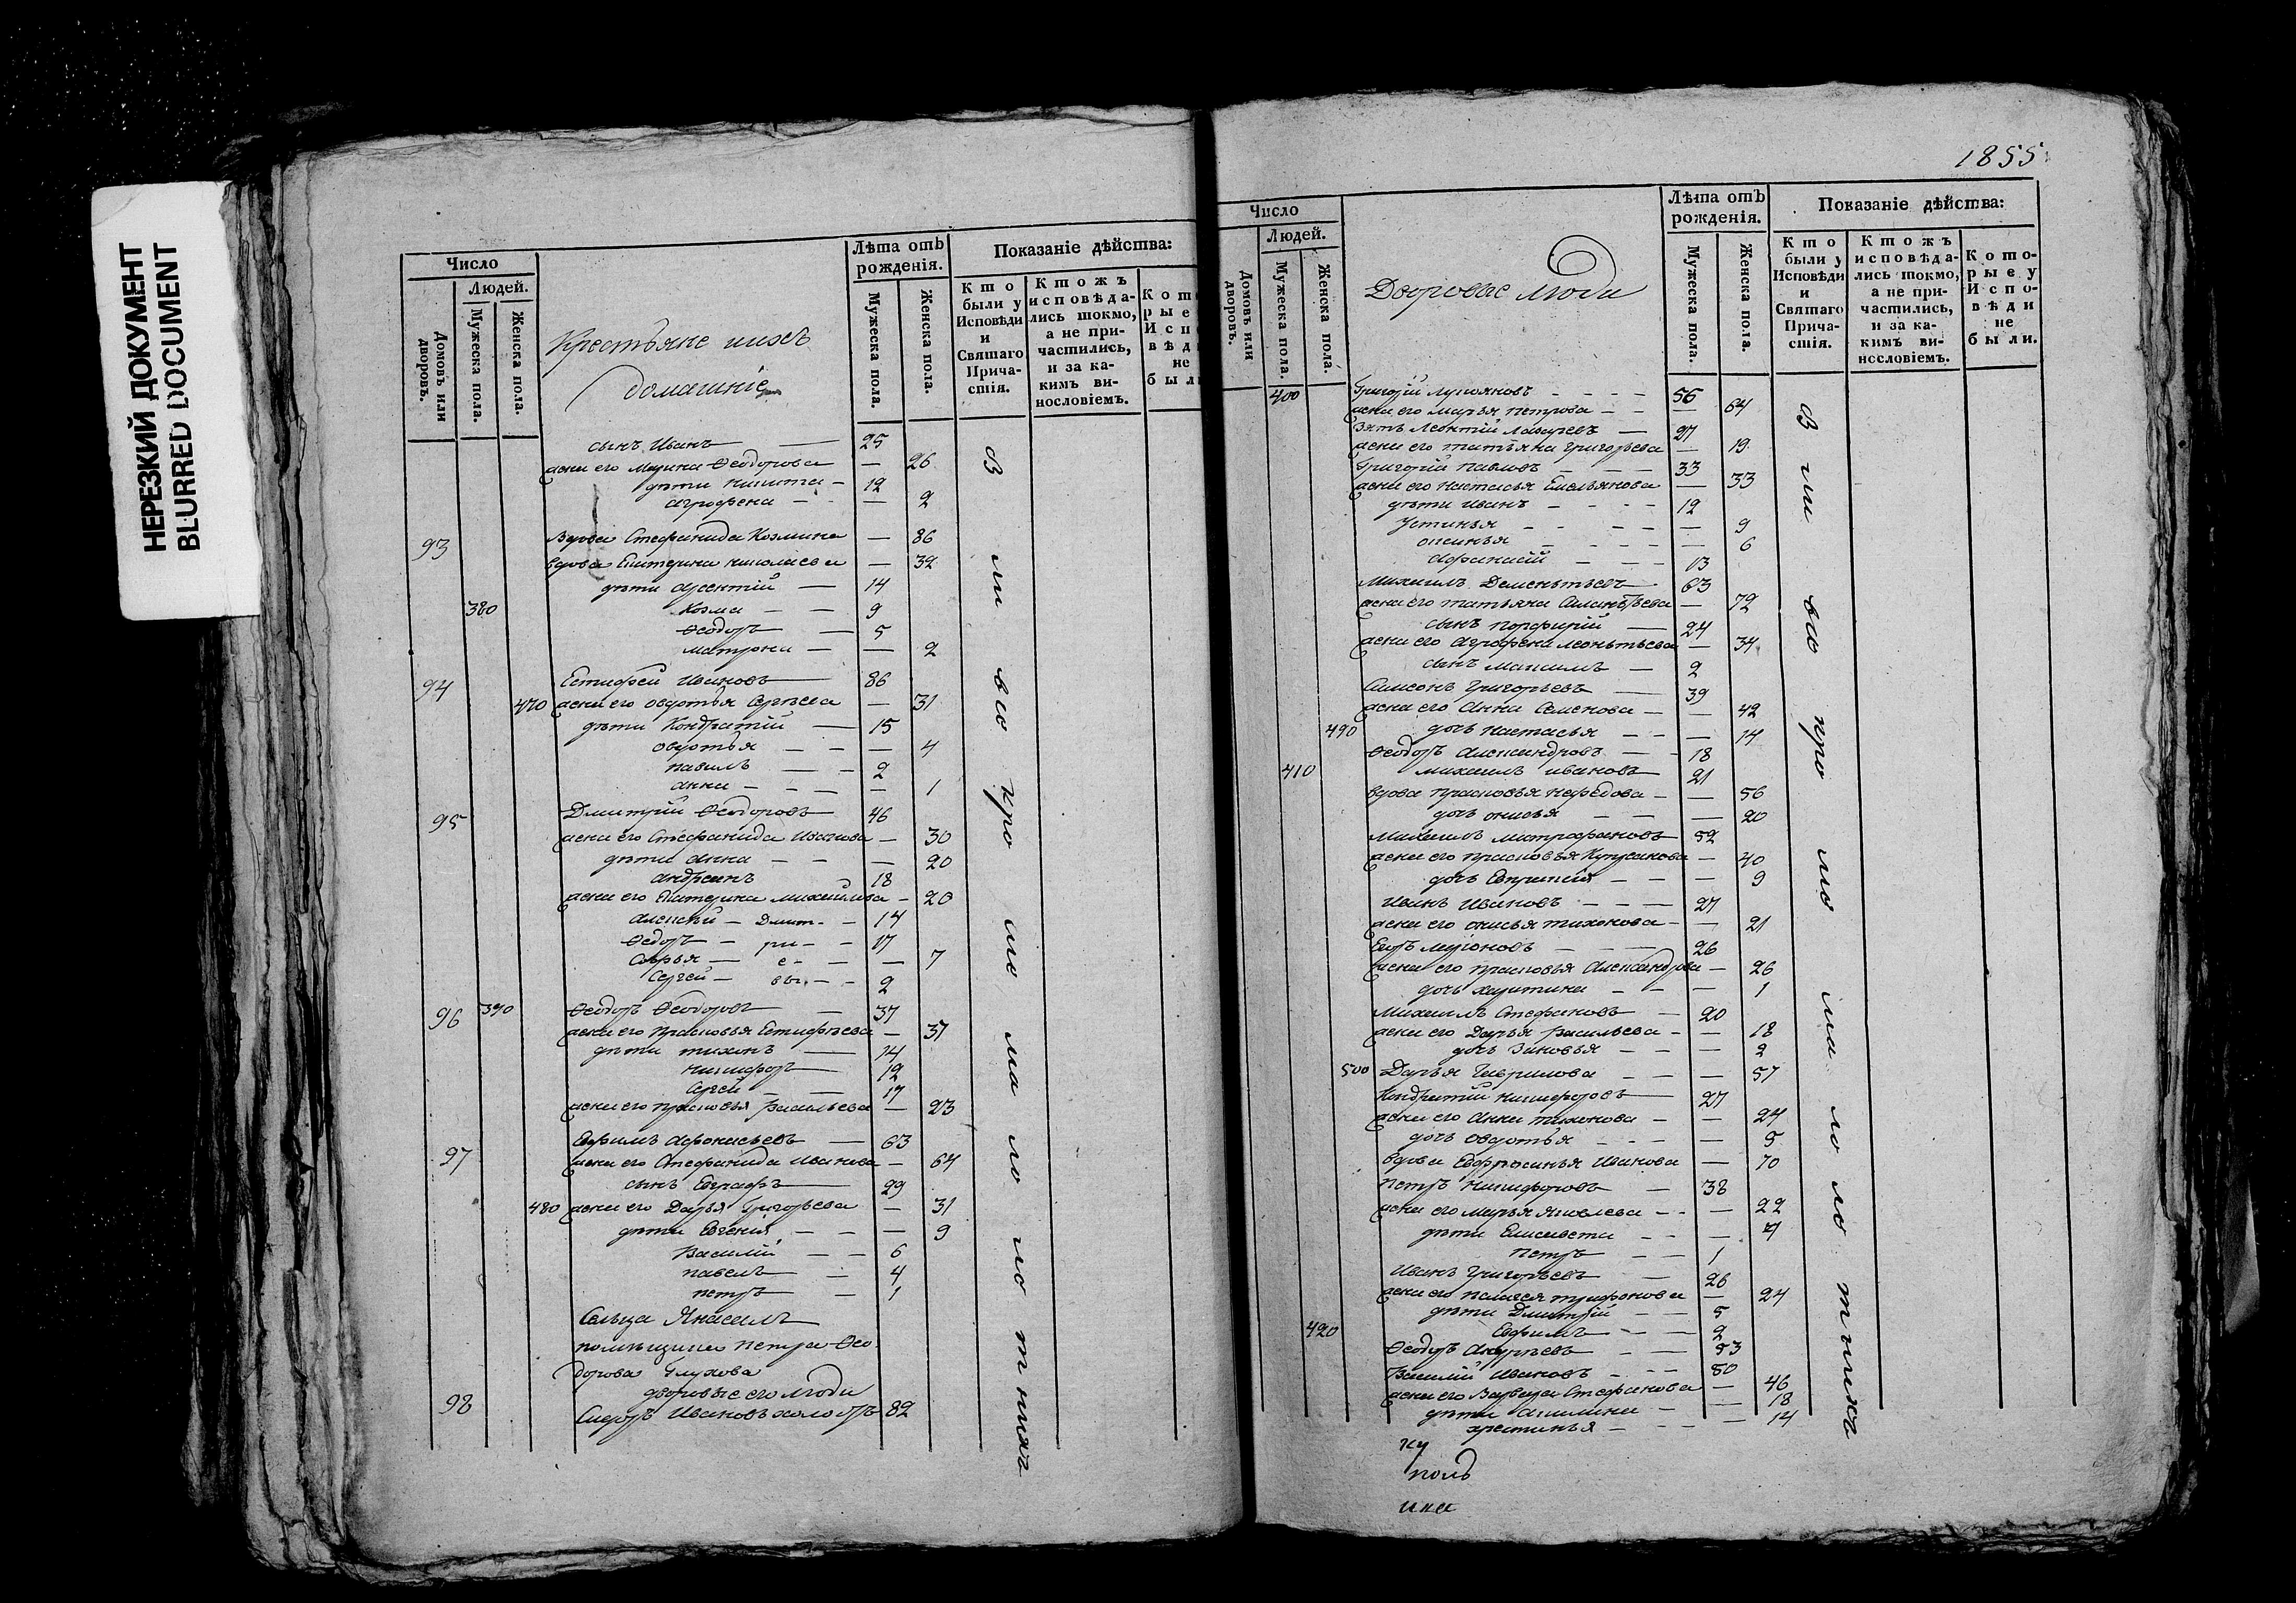 НЕРЕЗКИЙ ДОКУМЕНТ
BLURRED DOCUMENT
Число
Людей.
Домовъ или дворовъ.
Мужеска пола.
Женска пола.
Крестьяне ихъ
домашніе
Лѣта отъ рожденія.
Мужеска пола.
Женска пола.
Показаніе дѣйства:
Кто были у Исповѣди и Святаго Причастія.
Ктожъ исповѣдались токмо, а не причастились, и за какимъ винословіемъ.
сынъ Иванъ 25
жена его Марина Ѳеодорова — 26
дѣти Никита — 12
Агрофена — 2
93 Вдова Стефанида Козмина — 86
вдова Екатерина Николаева — 32
дѣти 14
380 Козма — 9
Ѳеодоръ — 5
Матрона — 2
94 Естифей Ивановъ 86
470 жена его Овдотья Сергѣева — 31
дѣти Кондратій — 15
Овдотья — 4
Павилъ — 2
Анна — 1
95 Дмитрій Ѳеодоровъ 46
жена его Стефанида Иванова — 30
дѣти Анна — 20
Андреянъ 18
жена его Екатерина Михайлова — 20
Алексѣй — Дмит- — 14
Ѳедоръ — ри- — 17
Дарья — е- — 7
Сергей — вы. — 2
96 390 Ѳеодоръ Ѳеодоровъ — 37
жена его Прасковья Естифѣева — 37
дѣти Тихонъ — 14
Никифоръ 12
Сергей — 17
жена его Прасковья Васильева — 23
97 Ефимъ Афонасьевъ — 63
жена его Стефанида Иванова — 64
сынъ Евграфъ 29
480 жена его Дарья Григорьева — 31
дѣти Евгенія — 9
Василій — 6
Павелъ — 4
Петръ — 1
Сельца
помѣщика Петра Ѳео
дорова Глухова
дворовые его люди
98 Сидоръ Ивановъ холостъ 82
1855
Число
Людей.
Домовъ или дворовъ.
Мужеска пола.
Женска пола.
Дворовые люди
Лѣта отъ рожденія.
Мужеска пола.
Женска пола.
Показаніе дѣйства:
Кто были у Исповѣди и Святаго Причастія.
Ктожъ исповѣдались токмо, а не причастились, и за какимъ винословіемъ.
Которые у Исповѣди не были.
400 Григорій Лукояновъ — 56
жена его Марья Петрова — 64
Зять Леонтій Лазаревъ — 27
жена его Татьяна Григорьева — 19
Григорій Павловъ — 33
жена его Настасья Емельянова — 33
дѣти Иванъ — 12
Устинья — 9
Оксинья — 6
Афанасій — 13
Михаилъ Дементьевъ 63
жена его Татьяна — 72
сынъ Порфирій — 24
жена его Агрофена Леонтьева — 34
сынъ Максимъ — 2
Самсонъ Григорьевъ — 39
жена его Анна Семенова — 42
490 дочь Настасья — 14
Ѳеодоръ Александровъ — 18
410 Михаилъ Ивановъ 21
вдова Прасковья Нефедова — 56
дочь Онисья — 20
Михаилъ Митрофановъ 52
жена его Прасковья Купрянова — 40
дочь Евпраксія — 9
Иванъ Ивановъ — 27
жена его Онисья Тихонова — 21
26
жена его Прасковья Александрова — 26
дочь Харитина — 1
Михаилъ Стефановъ — 20
жена его Дарья Васильева — 18
дочь Зиновья — 2
500 Дарья Гаврилова — 57
Кондратій Никифоровъ — 27
жена его Анна Тихонова — 24
дочь Овдотья — 5
вдова Евфросинья Иванова — 70
Петръ Никифоровъ — 38
жена его Марья Яковлева — 22
дѣти Елисавета — 4
Петръ — 1
Иванъ Григорьевъ — 26
жена его Пелагея Трифонова — 24
дѣти Дмитрій — 5
420 Ефимъ — 2
Ѳеодоръ — 53
Василій Ивановъ — 50
жена его Варвара Стефанова — 46
дѣти Акилина — 18
Христинья — 14